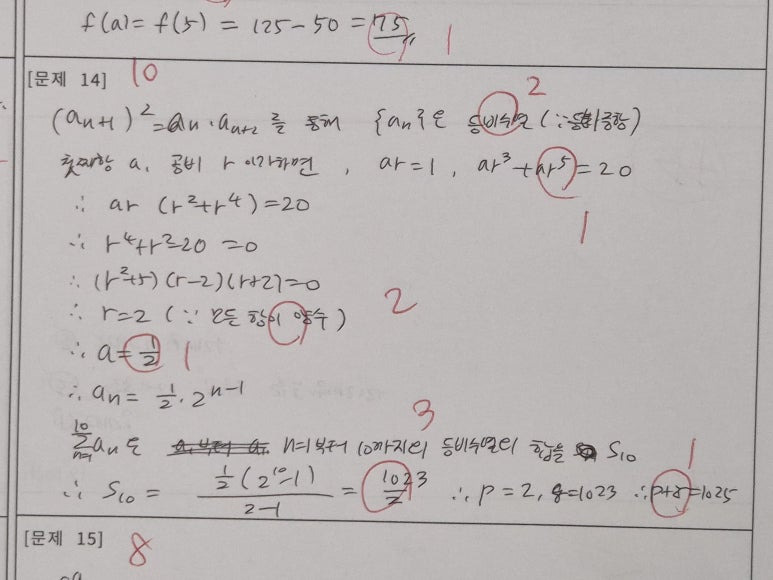 f(a) = f(5) = 125-50 = 75
1
[문제 14] 10
(a_{n+1})^2 = a_n · a_{n+2} 를 통해 {a_n}은 등비수열 (∵ 등비중항) 2
첫째항 a, 공비 r 이라하면, ar=1, ar^3+ar^5=20
∴ ar (r^2+r^4)=20 1
∴ r^4+r^2-20=0
∴ (r^2+5)(r-2)(r+2)=0
∴ r=2 (∵ 모든 항이 양수) 2
∴ a=1/2 1
∴ a_n = 1/2 · 2^{n-1}
3
\sum_{n=1}^{10} a_n 은 n=1부터 10까지의 등비수열의 합을 S_{10} 1
∴ S_{10} = \frac{1/2(2^{10}-1)}{2-1} = 1023/2 ∴ p=2, q=1023 ∴ p+q=1025
[문제 15] 8